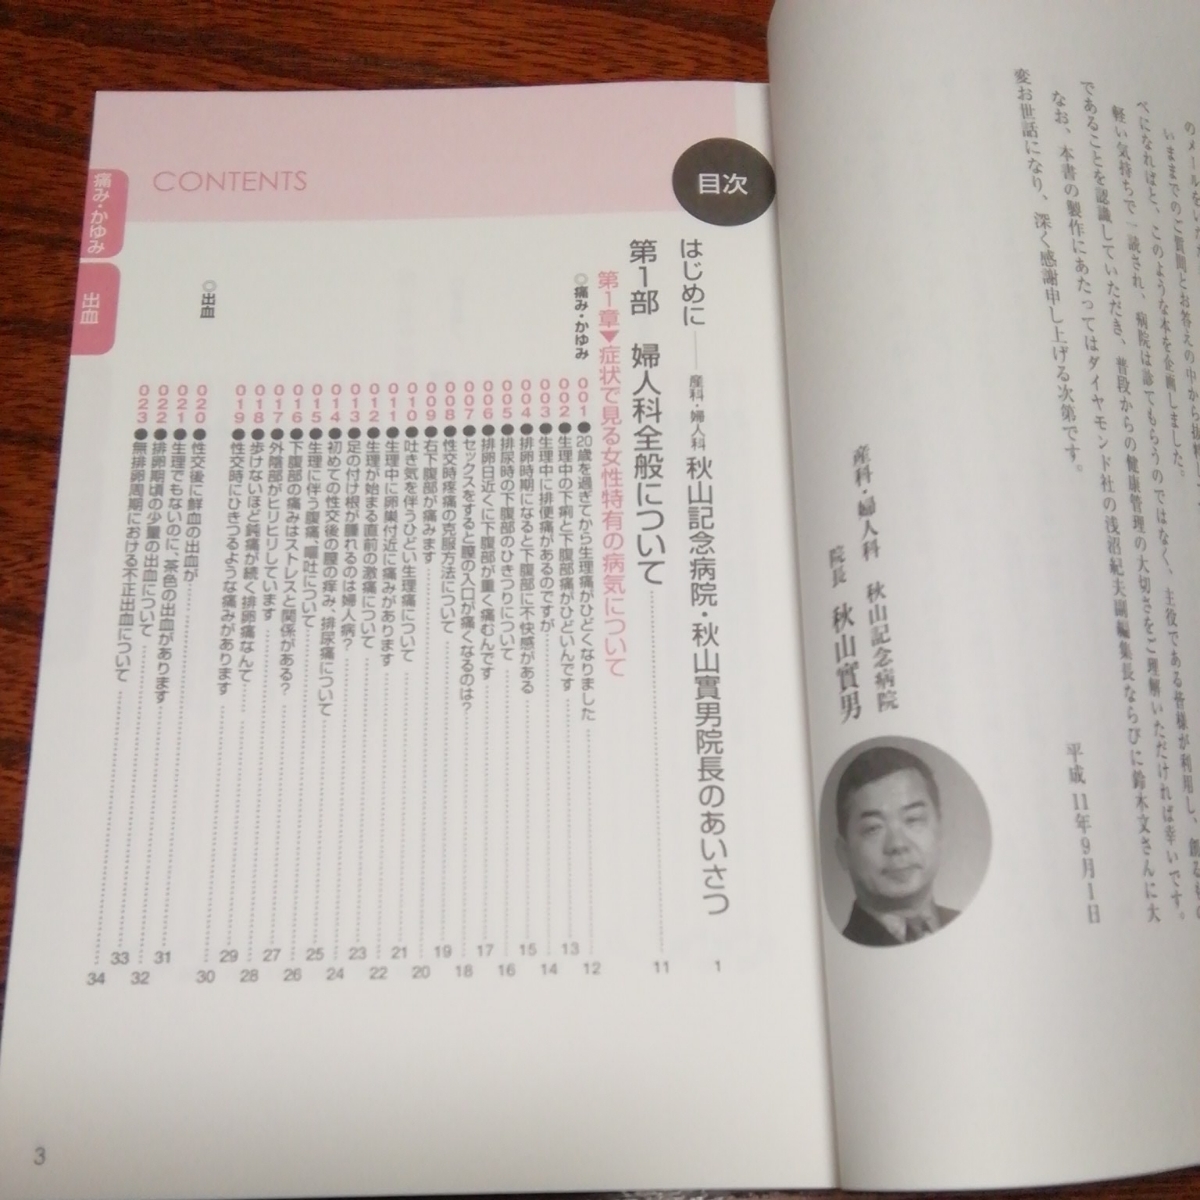 いままでのご質問とお答えの中から抜粋
べになればと、このような本を企画しました。
軽い気持ちで一読され、病院は診てもらうのではなく、主役である皆様が利用し、創るもの
であることを認識していただき、普段からの健康管理の大切さをご理解いただければ幸いです。
なお、本書の製作にあたってはダイヤモンド社の浅沼紀夫副編集長ならびに鈴木文さんに大
変お世話になり、深く感謝申し上げる次第です。
平成11年9月1日
産科・婦人科 秋山記念病院
院長 秋山實男
目次
CONTENTS
はじめに――産科・婦人科 秋山記念病院・秋山實男院長のあいさつ 1
第1部 婦人科全般について 11
第1章▼症状で見る女性特有の病気について
◎痛み・かゆみ
001●20歳を過ぎてから生理痛がひどくなりました 12
002●生理中の下痢と下腹部痛がひどいんです 13
003●生理中に排便痛があるのですが 14
004●排卵時期になると下腹部に不快感がある 15
005●排尿時の下腹部のひきつりについて 16
006●排卵日近くに下腹部が重く痛むんです 17
007●セックスをすると膣の入口が痛くなるのは? 18
008●性交時疼痛の克服方法について 19
009●右下腹部が痛みます 20
010●吐き気を伴うひどい生理痛について 21
011●生理中に卵巣付近に痛みがあります 22
012●生理が始まる直前の激痛について 23
013●足の付け根が腫れるのは婦人病? 24
014●初めての性交後の膣の痒み、排尿痛について 25
015●生理に伴う腹痛、嘔吐について 26
016●下腹部の痛みはストレスと関係がある? 27
017●外陰部がヒリヒリしています 28
018●歩けないほど鈍痛が続く排卵痛なんて 29
019●性交時にひきつるような痛みがあります 30
◎出血
020●性交後に鮮血の出血が 31
021●生理でもないのに、茶色の出血があります 32
022●排卵期頃の少量の出血について 33
023●無排卵周期における不正出血について 34
痛み・かゆみ
出血
3